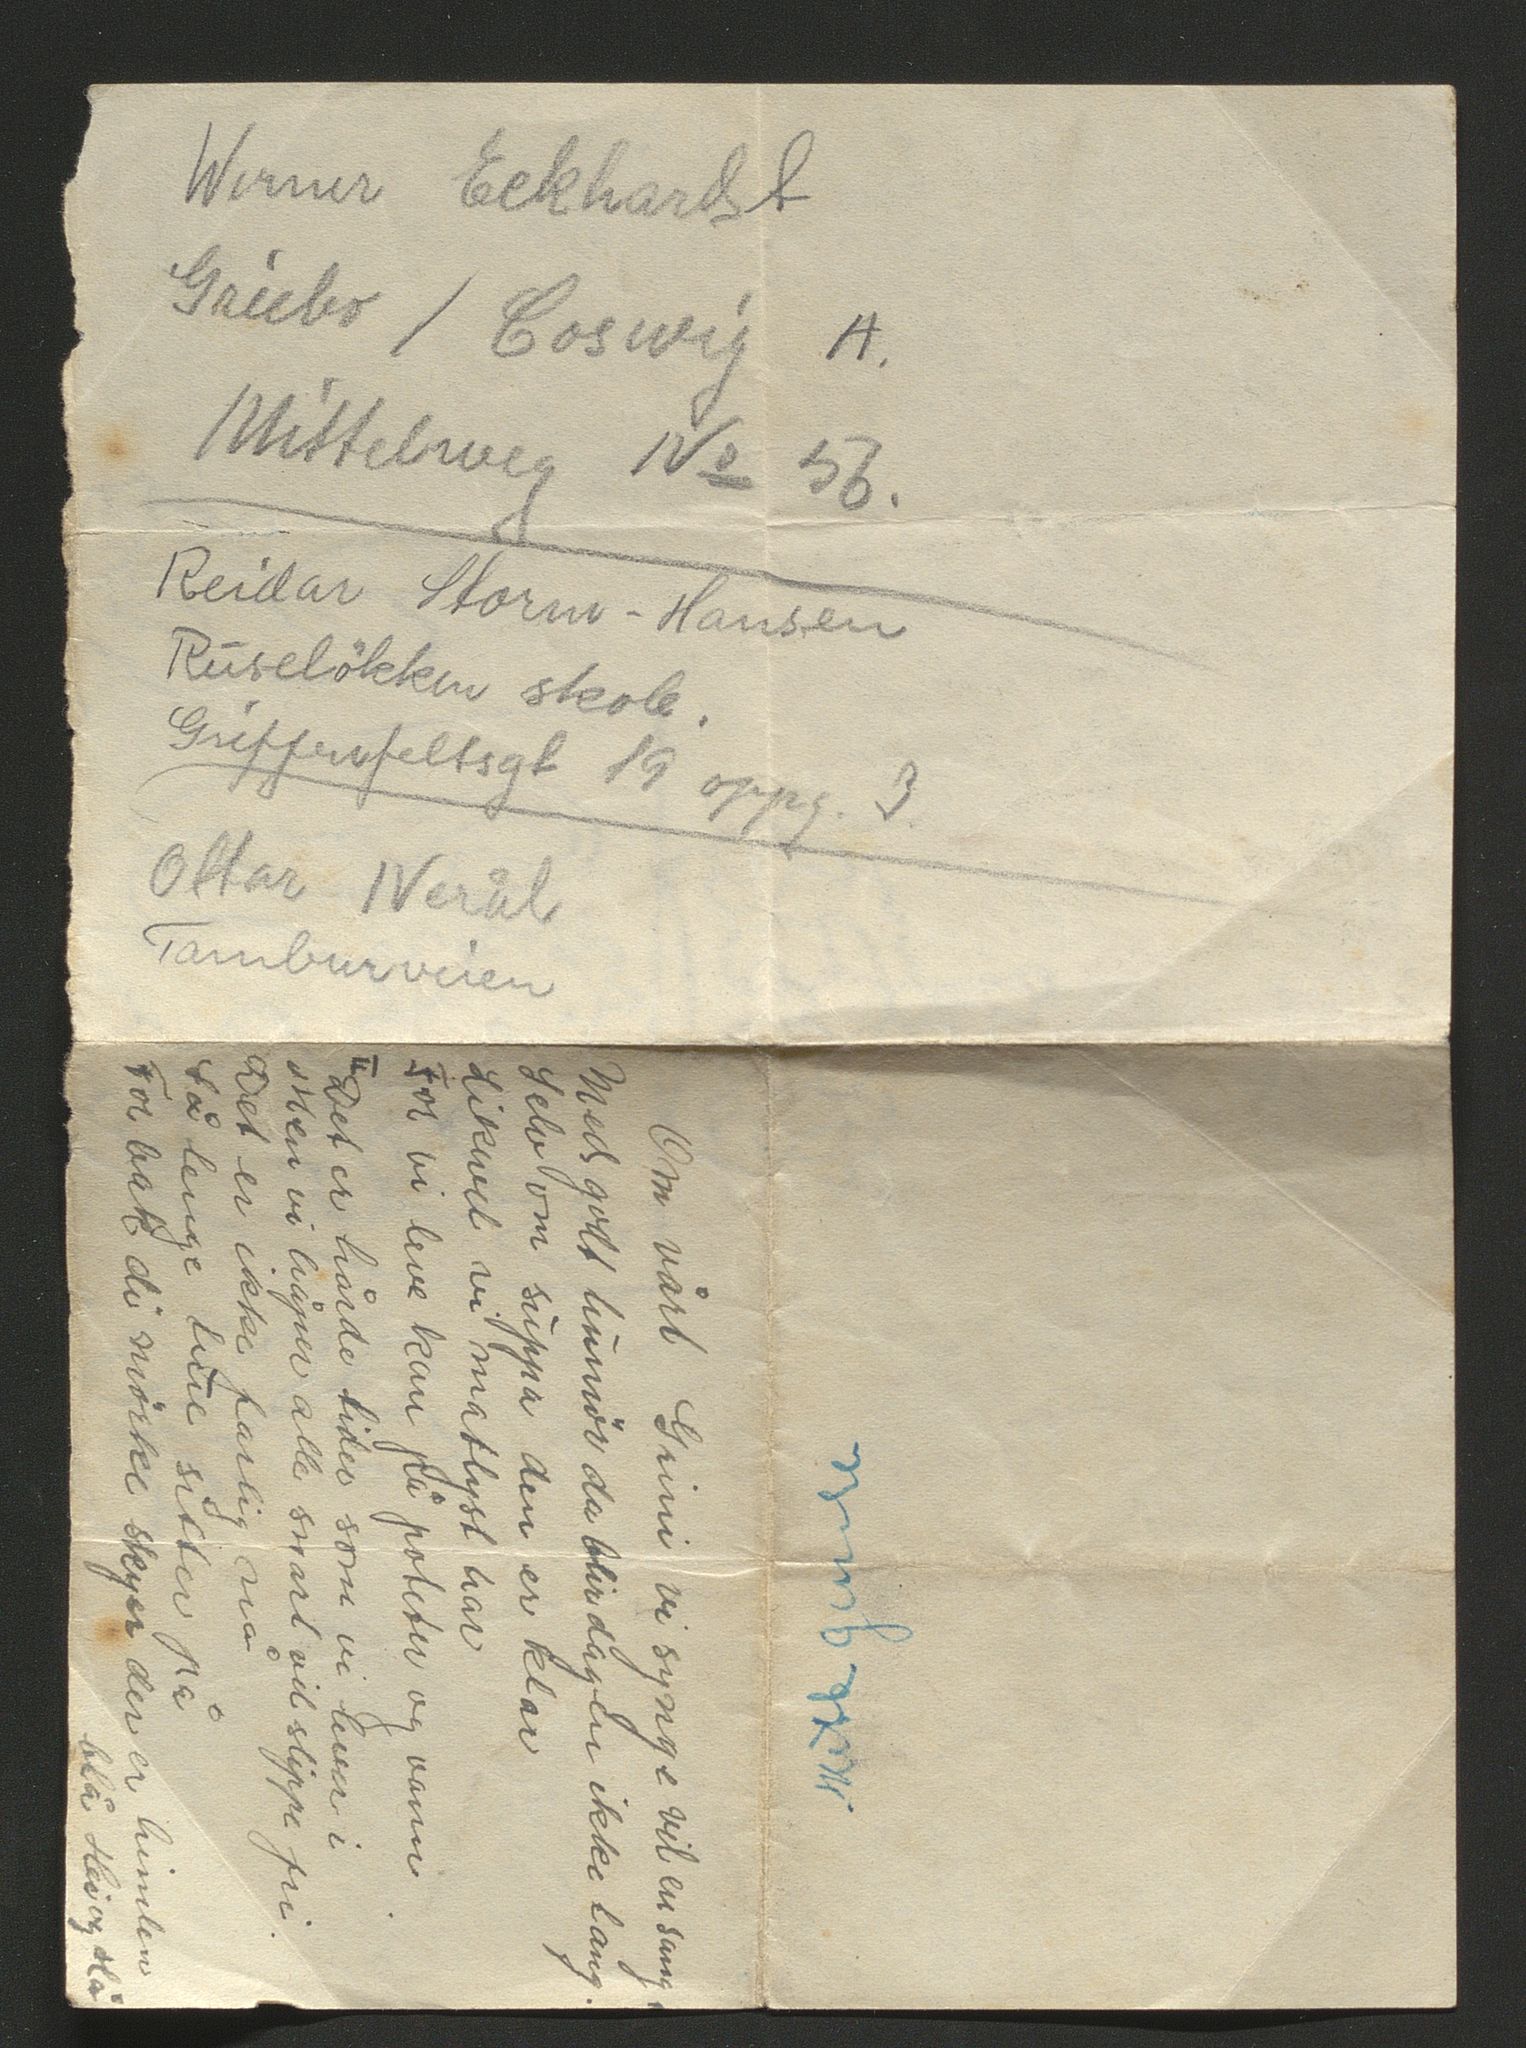 Werner Eckhardt
Griebo / Coswig A.
Mittelweg No 56.
Reidar Storm-Hansen
Ruseløkken skole.
Griffenfeltsgt 19 oppg. 3.
Ottar Nerål
Tamburveien
Om vårt Grini vi synge vil en sang,
Med godt humør da blir dagen ikke lang.
Selv om suppa den er klar
Likevel vi matlyst har
For vi leve kan på poteter og vann
II Det er hårde tider som vi lever i
Men vi håper alle snart vil slippe fri.
Det er ikke farlig nå
Så lenge lue sitter på
For bak di mörke skyer der er himlen
blå Hei og Hå